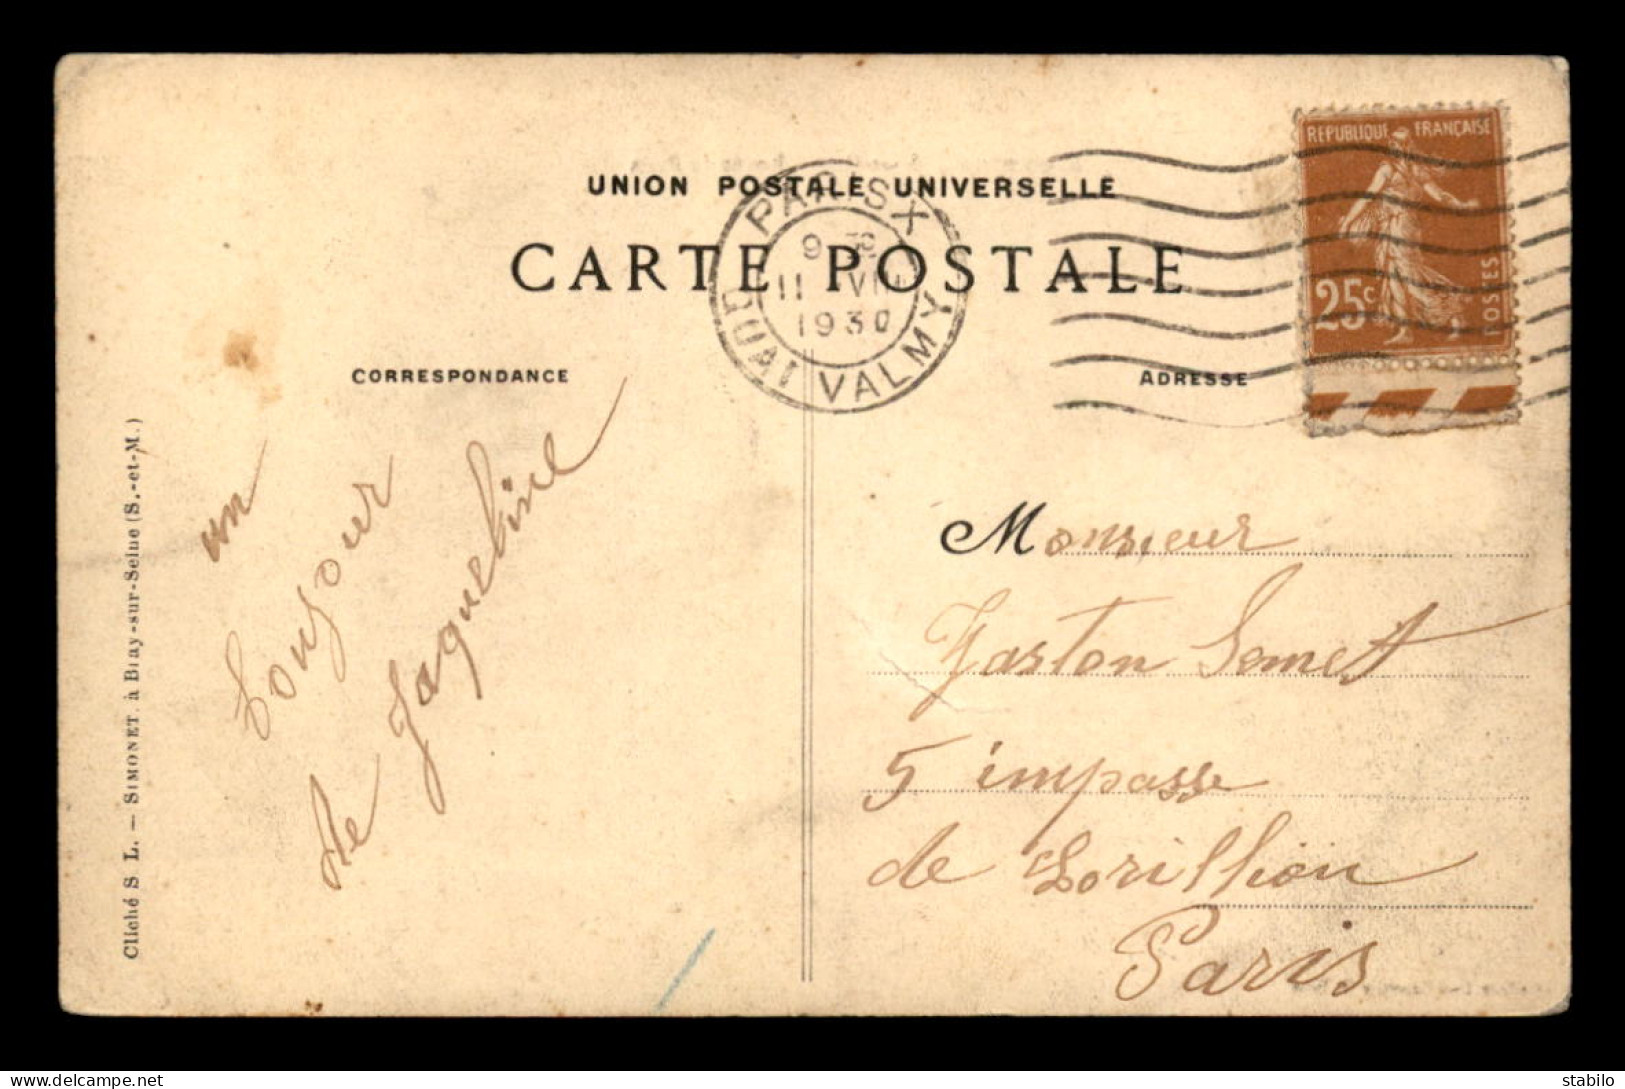 UNION POSTALE UNIVERSELLE
CARTE POSTALE
PARIS X
9 30
11 VII
1930
QUAI VALMY
REPUBLIQUE FRANÇAISE
25c
POSTES
CORRESPONDANCE
ADRESSE
un
bonjour
de Jaqueline
Monsieur
Gaston Semet
5 impasse
de Lorillion
Paris
Cliché S L. — SIMONET, à Bray-sur-Seine (S.-et-M.)
delcampe.net
stabilo